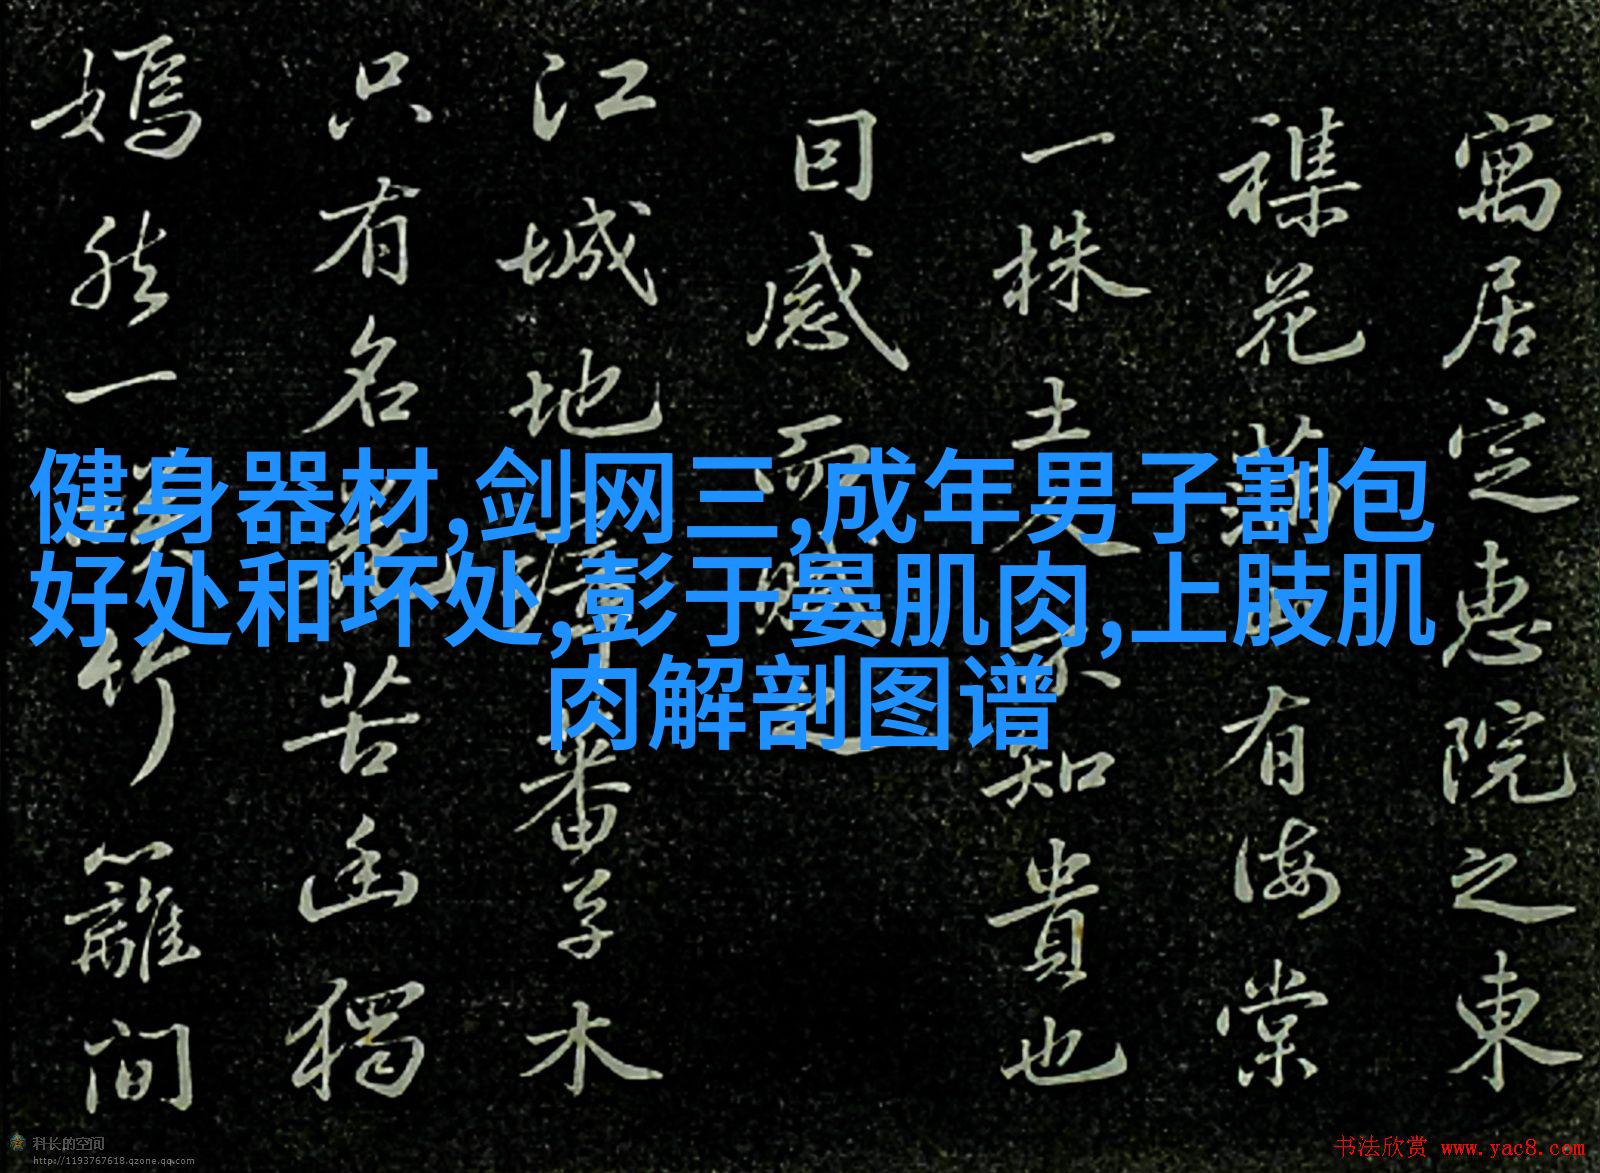 寓居定惠院之東
襍花滿山有海棠
一株土人不知貴也
囙感而賦之
江城地瘴蕃草木
只有名花苦幽獨
嫣然一笑竹籬間
健身器材,剑网三,成年男子割包
好处和坏处,彭于晏肌肉,上肢肌
肉解剖图谱
科长的空间
http://1193767618.qzone.qq.com
书法欣赏 www.yac8.com